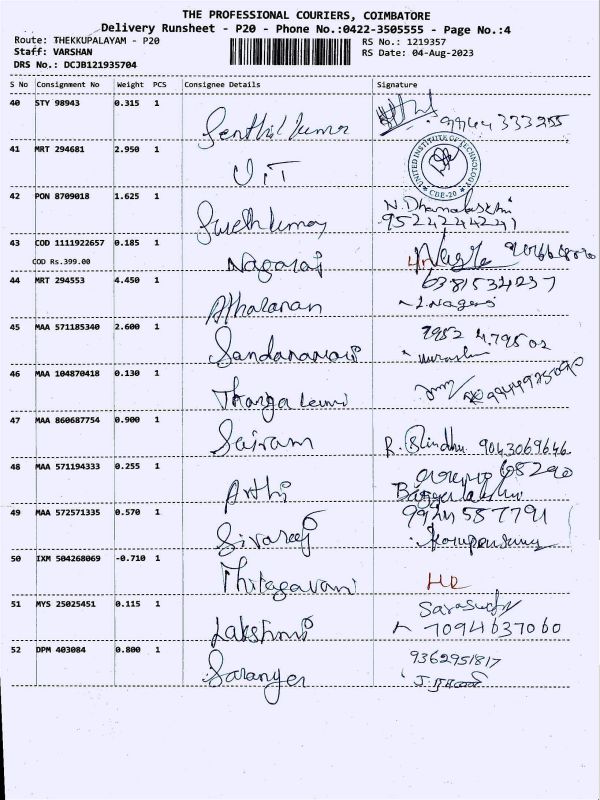 THE PROFESSIONAL COURIERS, COIMBATORE
Delivery Runsheet - P20 - Phone No.:0422-3505555 - Page No.:4
Route: THEKKUPALAYAM - P20
RS No.: 1219357
Staff: VARSHAN
RS Date: 04-Aug-2023
DRS No.: DCJB121935704
S No Consignment No Weight PCS Consignee Details Signature
40 STY 98943 0.315 1 Senthil kumar 99444 333255
41 MRT 294681 2.950 1 UIT
UNITED INSTITUTE OF TECHNOLOGY
CBE-20
42 PON 8709018 1.625 1 N. Dhanalakshmi
9524224241
43 COD 1111922657 0.185 1 Nagaraj
COD Rs.399.00
44 MRT 294553 4.450 1 6381534237
45 MAA 571185340 2.600 1
46 MAA 104870418 0.130 1
47 MAA 860687754 0.900 1 Sairam R. Bindhu 9043069646
48 MAA 571194333 0.255 1 Arthi
49 MAA 572571335 0.570 1 Sivaraj 99424 587791
50 IXM 504268069 -0.710 1
51 MYS 25025451 0.115 1 Lakshmi 7094637060
52 DPM 403084 0.800 1 Saranya 9362951817